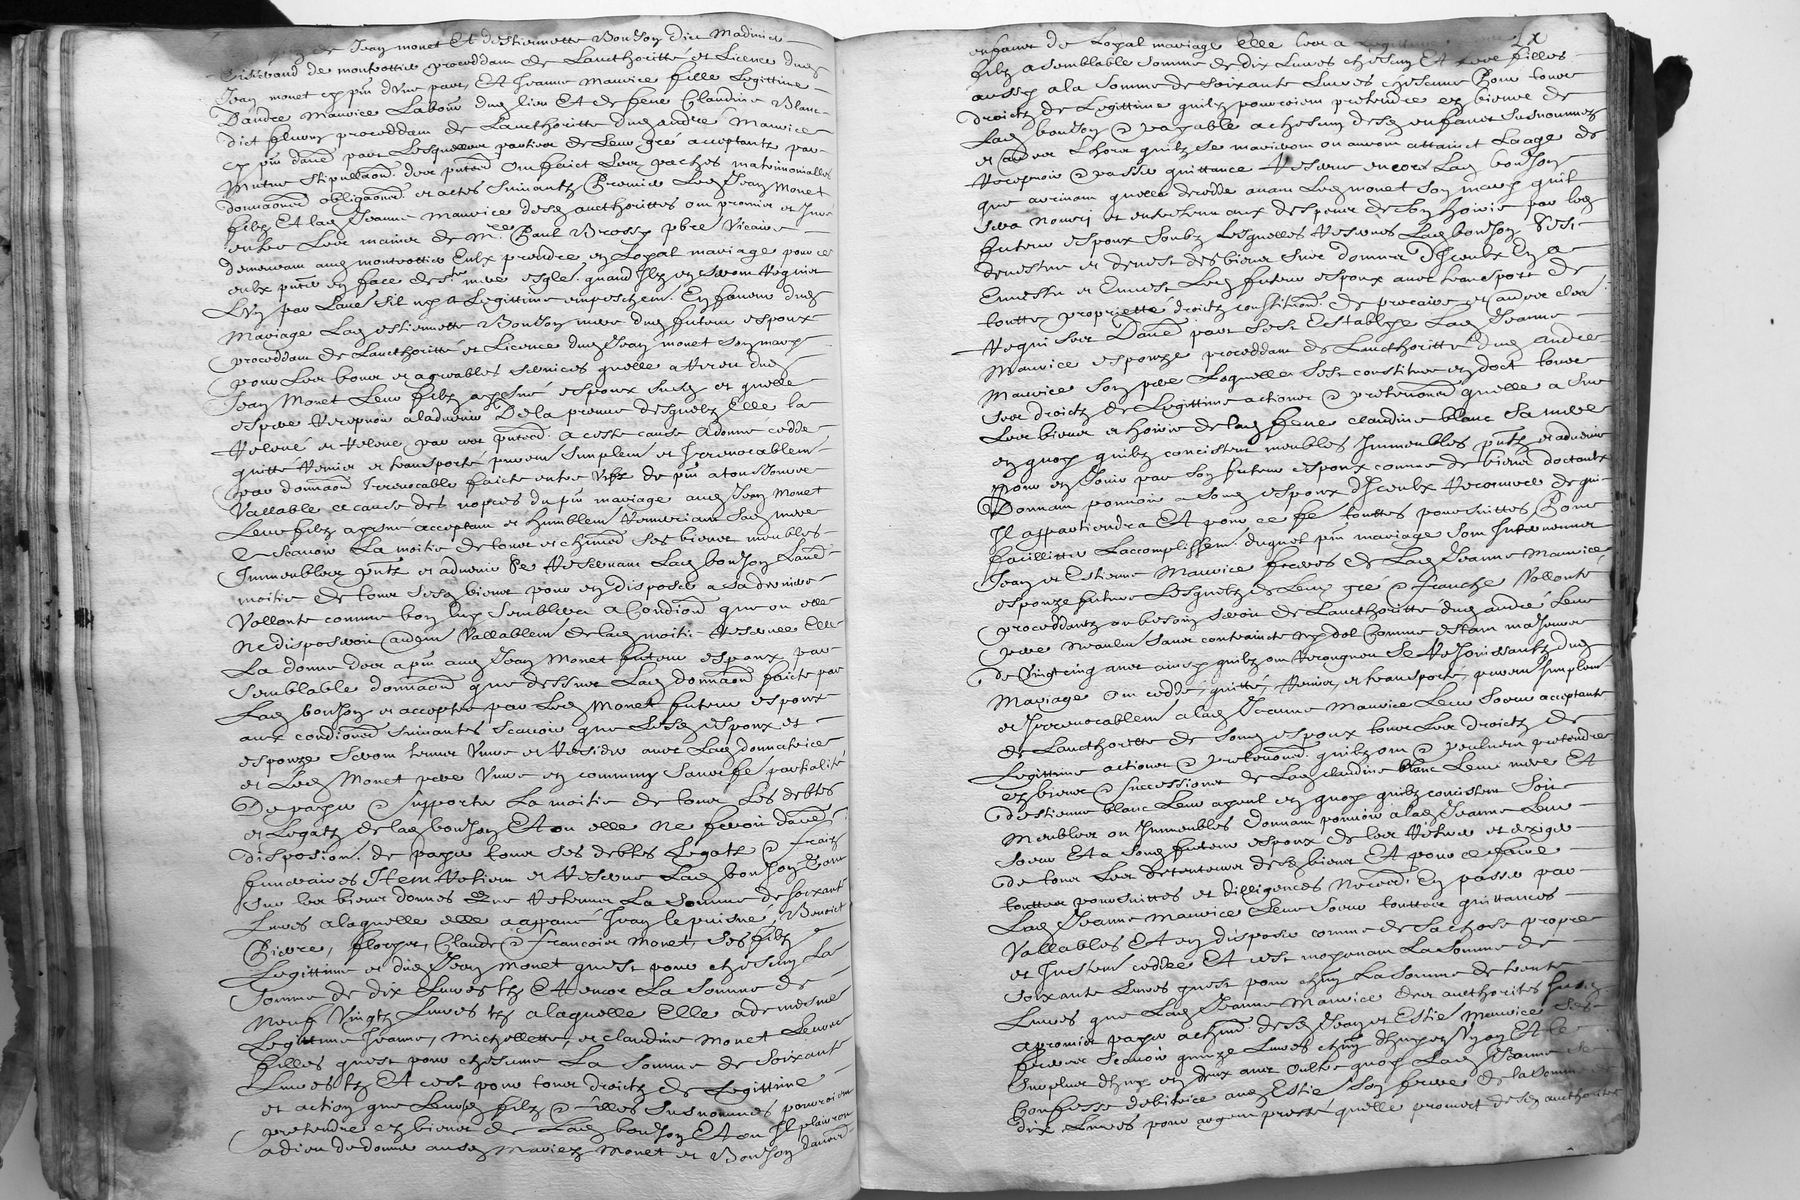 de Jean monet Et destiennette Bonson du
de montrottier proceddant de Lancthoritté et Licence dud
Jean monet cy pnt dune part, Et Jeanne Maurice fille Legittime
Dandre Maurice Labour dud lieu Et de feue Claudine Blanc
dict proceddant de Lancthoritte dud andre Maurice
cy pnt dautre part Lesquelles parties de Leur gré acceptants par
mutue stipullaond Ont faict Les paches matrimonialles
donnaons obligaons et actes suivantz Premier Led Jean Monet
filz Et lad Jeanne Maurice desd aucthorittes ont promis et Jure
entre Les mains de Mre Paul Brossy pbre Vicaire
demeurant aud montrottier Eulx prendre en Loyal mariage pour ce
eulx en face de ste mere esgle quand Ilz en seront Requis
Lun par Lautre sil ny a Legittime empeschemt En faveur dud
Mariage Lad estiennette Bonson mere dud futeur espoux
proceddant de Lancthoritté et Licence dud Jean monet son mary
pour Les bons et agreables services quelle a Receu dud
Jean Monet Leur filz ayné espoux susd et quelle
espere Recepvoir aladvenir De la preuve desquelz Elle la
Relevé et Releve, par ces pntes a ceste cause a donne cedde
quitte Remis et transporté purement simplemt et Irrevocablemt
par donnaon Irrevocable faicte entre Vifz de pnt a tousiours
Vallable et cause des nopces du pnt mariage aud Jean Monet
Leur filz ayne acceptant et humblemt Remerciant Sad mere
scavoir La moitie de tous et chescuns Ses biens meubles
Immeubles pntz et advenir Se Reservant Lad bonson Lautre
moitie de tous sesd biens pour en disposer a sa derniere
Vollonte comme bon luy semblera a Condition que ou elle
ne disposeroit Vallablemt de lad moitie Reservee Elle
La donne des a pnt aud Jean Monet futeur espoux par
Semblable donnaon que dessus Lad donnaon faicte par
Lad bonson et acceptée par Led Monet futeur espoux
aux conditions suivantes scavoir que Lesd espoux et
espouze seront tenus Vivre et Resider avec Lad donnatrice
et Led Monet pere Vivre en commung sans se partialité
De payer supporter La moitie de tous Les debtes
et Legatz de lad bonson Et ou elle ne feroit
disposion de payer tous ses debtes Legatz frais
funeraires Item Retient et Reserve Lad bonson
Sur les biens donnes Retenus La somme de soixante
Livres alaquelle elle Jean le puisné, Benoict
Pierre, Claude francois Monet, ses filz
Legittime et dud Jean Monet quest pour chescun La
Somme de dix Livres tz Et encor La Somme de
neuf Vingtz Livres tz alaquelle Elle ademesme
Legittime Jeanne, Michellette, et claudine Monet Leurs
filles quest pour chescune La Somme de Soixante
Livres tz Et cest pour tous droictz de Legittime
et action que Leursd filz filles Susnommes pourroient
pretendre ez biens de Lad bonson Et ou Il plairoit
a dieu de donner ausd mariez Monet et Bonson
enfans de Loyal mariage Elle Les a
filz a semblable Somme de dix Livres chescun Et filles
aussy ala Somme de Soixante Livres chescune Pour tous
droictz de Legittime quilz pourroient pretendre ez biens de
Lad bonson payable a chescun desd enfans susnommes
et Lhors quilz se marieront ou auront attainct Laage de
Recepvoir passer quittance Reserve encores Lad bonson
que advenant quelle decedde avant Led monet son mary quil
sera nourry et entretenu aux despens de Son hoirie par led
futeur espoux Soubz Lesquelles Reserves Lad bonson Sest
devestue et devest des biens sus donnes Diceulx En a
Envestu et Envest Led futeur espoux avec transport de
toutte proprietté droictz constitution de precaire et
Requises Dautre part sest Establye Lad Jeanne
Maurice espouze proceddant de Lancthoritté dud andre
Maurice Son pere Laquelle Sest constituee en doct tous
Ses droictz de Legittime actions pretentions quelle a Sur
Les biens et hoirie de lad feue claudine blanc Sa mere
en quoy quilz concistent meubles Immeubles pntz et advenir
Pour en Jouir par Son futeur espoux comme de biens doctaulx
Donnant pouvoir a Sond espoux Diceulx Recouvrer de qui
Il appartiendra Et pour ce fe touttes poursuittes Pour
faciliter Laccomplissemt duquel pnt mariage Sont Intervenus
Jean et Estienne Maurice freres de Lad Jeanne Maurice
espouze future Lesquelz de Leur gré franche Vollonté
proceddantz au besoin seroit de Lancthoritte dud andré Leur
pere sans contraincte ny dol Comme estant majeurs
de Vingtcinq ans ainsy quilz ont Recogneu Se Resjouissantz dud
Mariage Ont ceddé, quitté, Remis, et transporté, purement simplemt
et Irrevocablemt alad Jeanne Maurice Leur Soeur acceptante
de Lancthoritte de Sond espoux tous Les droictz de
Legittime actions pretentions quilz ont peulvent pretendre
ez biens Successions de Lad claudine blanc Leur mere Et
destienne blanc Leur ayeul en quoy quilz concistent Soit
Meubles ou Immeubles donnant pouvoir alad Jeanne Leur
Soeur Et a Sond futeur espoux de les Retirer et exiger
de tous Les detenteurs desd biens Et pour ce faire
touttes poursuittes et dilligences Necessr En passer par
Lad Jeanne Maurice Leur Soeur touttes quittances
Vallables Et en disposer comme de Sa chose propre
et Justemt ceddee Et cest moyenant La Somme de
Soixante Livres quest pour chun La Somme de trente
Livres que Lad Jeanne Maurice des aucthorites susd
a promis payer a chescun desd Jean et Estie Maurice ses
freres Scavoir quinze Livres chun dhuy en Vn an Et le
Surplus dhuy en deux ans Oultre quoy Lad Jeanne Se
Confesse debitrice aud Estie Son frere de la Somme de
dix Livres pour argent presté quelle promect desd aucthorites